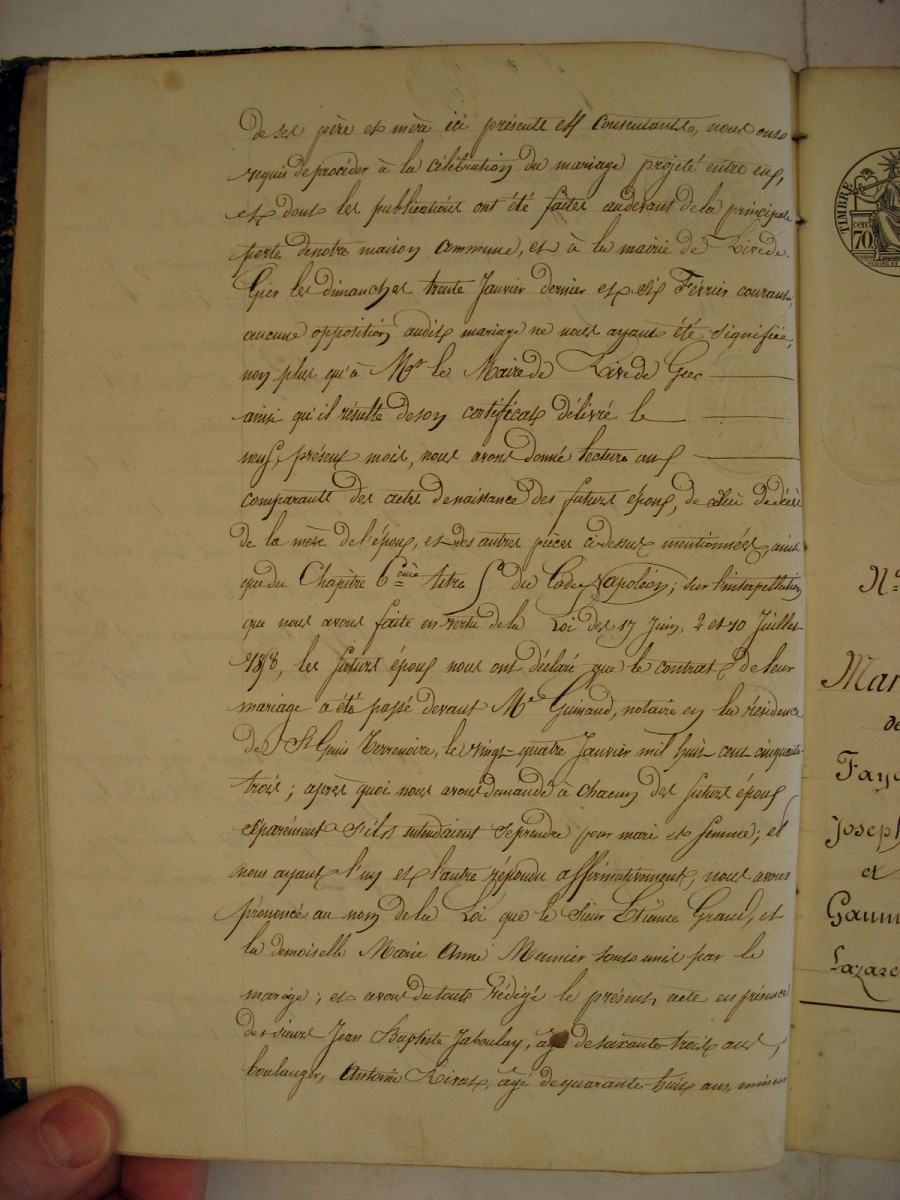 de ses père et mère ici présents et consentants, nous ont
requis de procéder à la célébration du mariage projété entre eux,
et dont les publications ont été faites audevant de la principale
porte de notre maison commune, et à la mairie de Rive de
Gier les dimanches trente Janvier dernier et six Fevrier courant,
aucune opposition audit mariage ne nous ayant été signifiée,
non plus qu'à Mr le Maire de Rive de Gier
ainsi qu'il résulte de son certificat délivré le
neuf, présent mois, nous avons donné lecture aux
comparants des actes de naissance des futurs époux, de celui de décès
de la mère de l'époux, et des autres pièces ci-dessus mentionnées, ainsi
que du Chapitre 6eme titre 5 du Code Napoléon; sur l'interpellation
que nous avons faite en vertu de la Loi des 17 Juin, 2 et 10 Juillet
1850, les futurs époux nous ont déclaré que le contrat de leur
mariage a été passé devant Me Guinaud, notaire en la résidence
de St Genis Terrenoire, le vingt-quatre Janvier mil huit cent cinquante-
trois; après quoi nous avons demandé à chacun des futurs époux
séparément s'ils entendaient se prendre pour mari et femme; et
nous ayant l'un et l'autre répondu affirmativement, nous avons
prononcé au nom de la Loi que le Sieur Etienne Graud, et
la demoiselle Marie Anne Meunier sont unis par le
mariage; et avons du tout rédigé le présent acte en présence
des sieurs Jean Baptiste Jaboulay, âgé de soixante-trois ans,
boulanger, Antoine Rivat, âgé de quarante-huit ans, mineur
TIMBRE
70 cen
No
Mar
de
Faye
Joseph
et
Gaum
Lazare